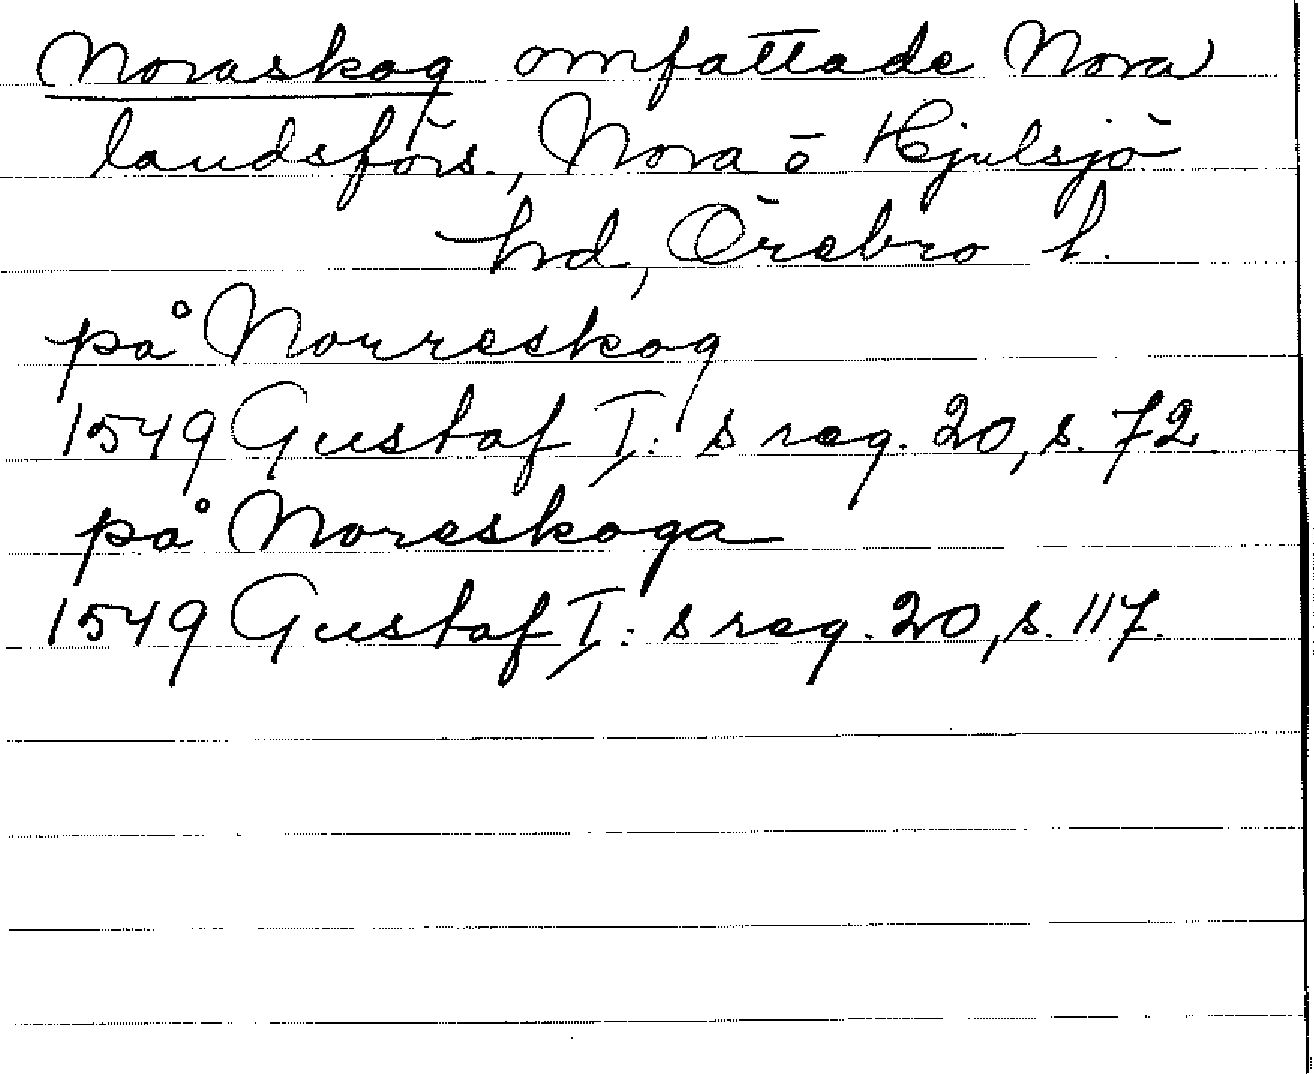 Noraskog omfattade Nora
landsförs., Nora o Hjulsjö
hd, Örebro l.
på Norreskog
1549 Gustaf I: s reg. 20, s. 72
på Noreskoga
1549 Gustaf I: s reg. 20, s. 117.